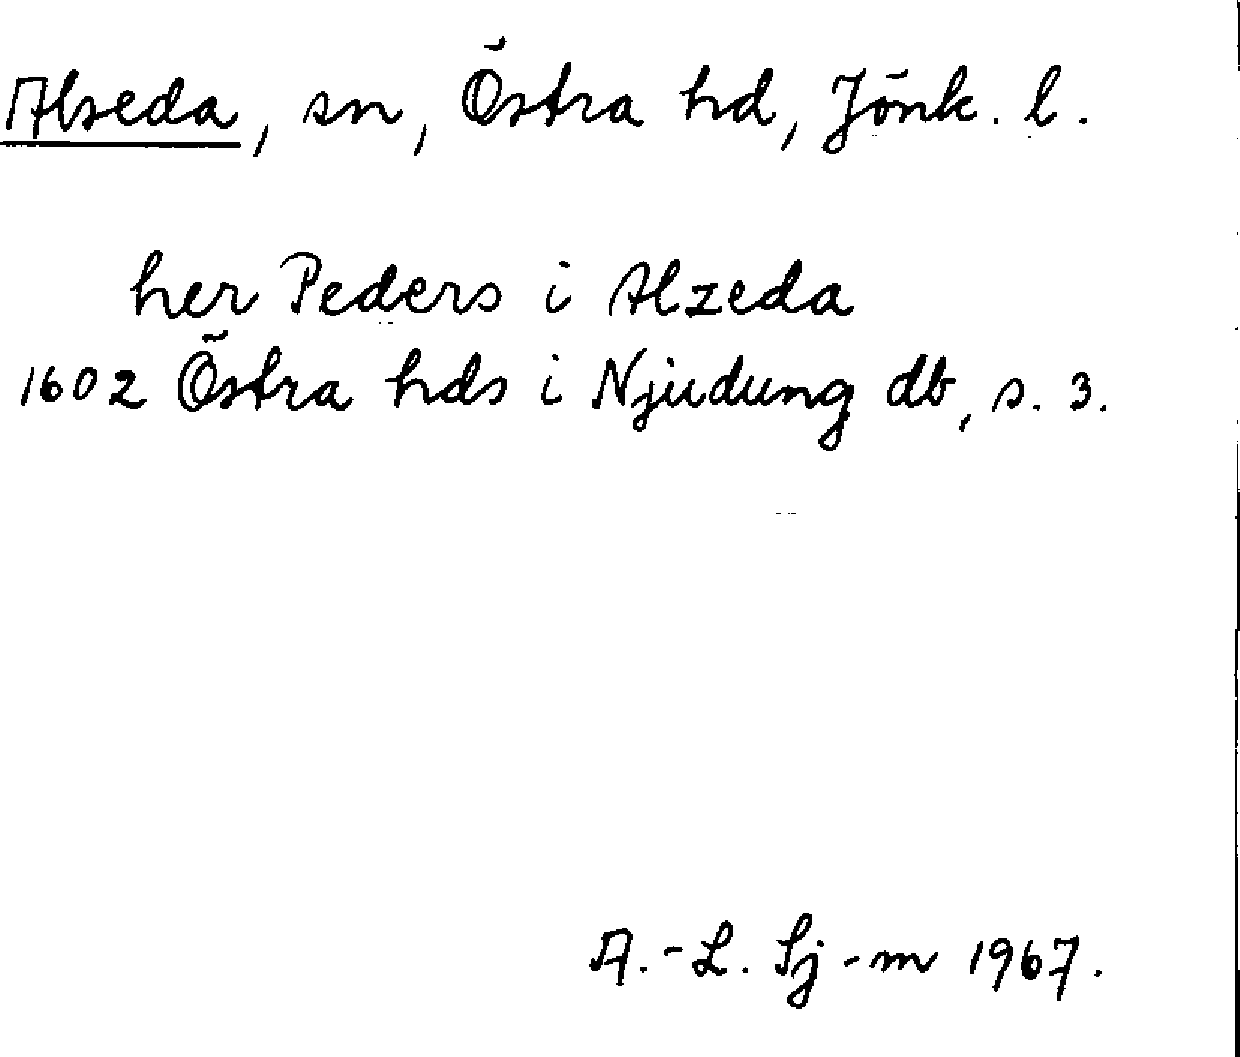 Alseda, sn, Östra hd, Jönk. l.
her Peders i Alzeda
1602 Östra hds i Njudung db, s. 3.
A.-L. Sj-m 1967.